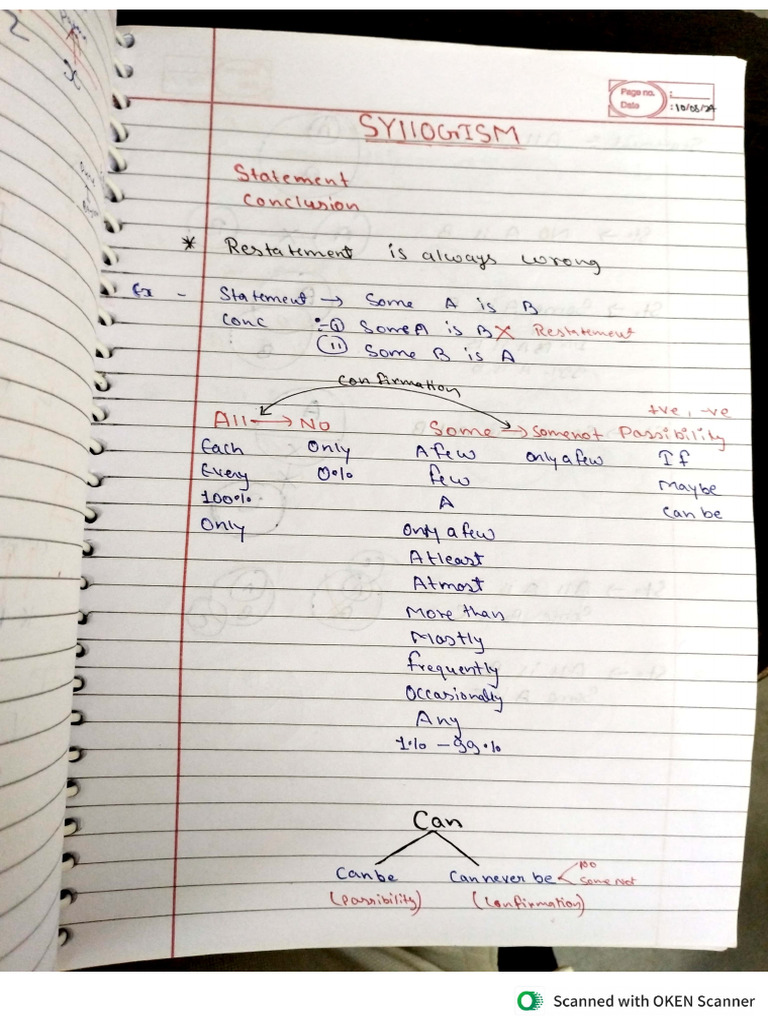 Page no. :
Date : 10/08/24
SYllOGISM
Statement
Conclusion
* Restatement is always wrong
Ex - Statement → Some A is B
Conc :- (i) Some A is B X Restatement
(ii) Some B is A
confirmation
+ve, -ve
All → No Some → Somenot Passibility
Each Only A few only a few If
Every 0% few Maybe
100% A Can be
Only Only a few
Atleast
Atmost
More than
Mostly
frequently
Occasionally
Any
1% - 99%
Can
Can be Can never be < No
Some not
(Passibility) (Confirmation)
Scanned with OKEN Scanner